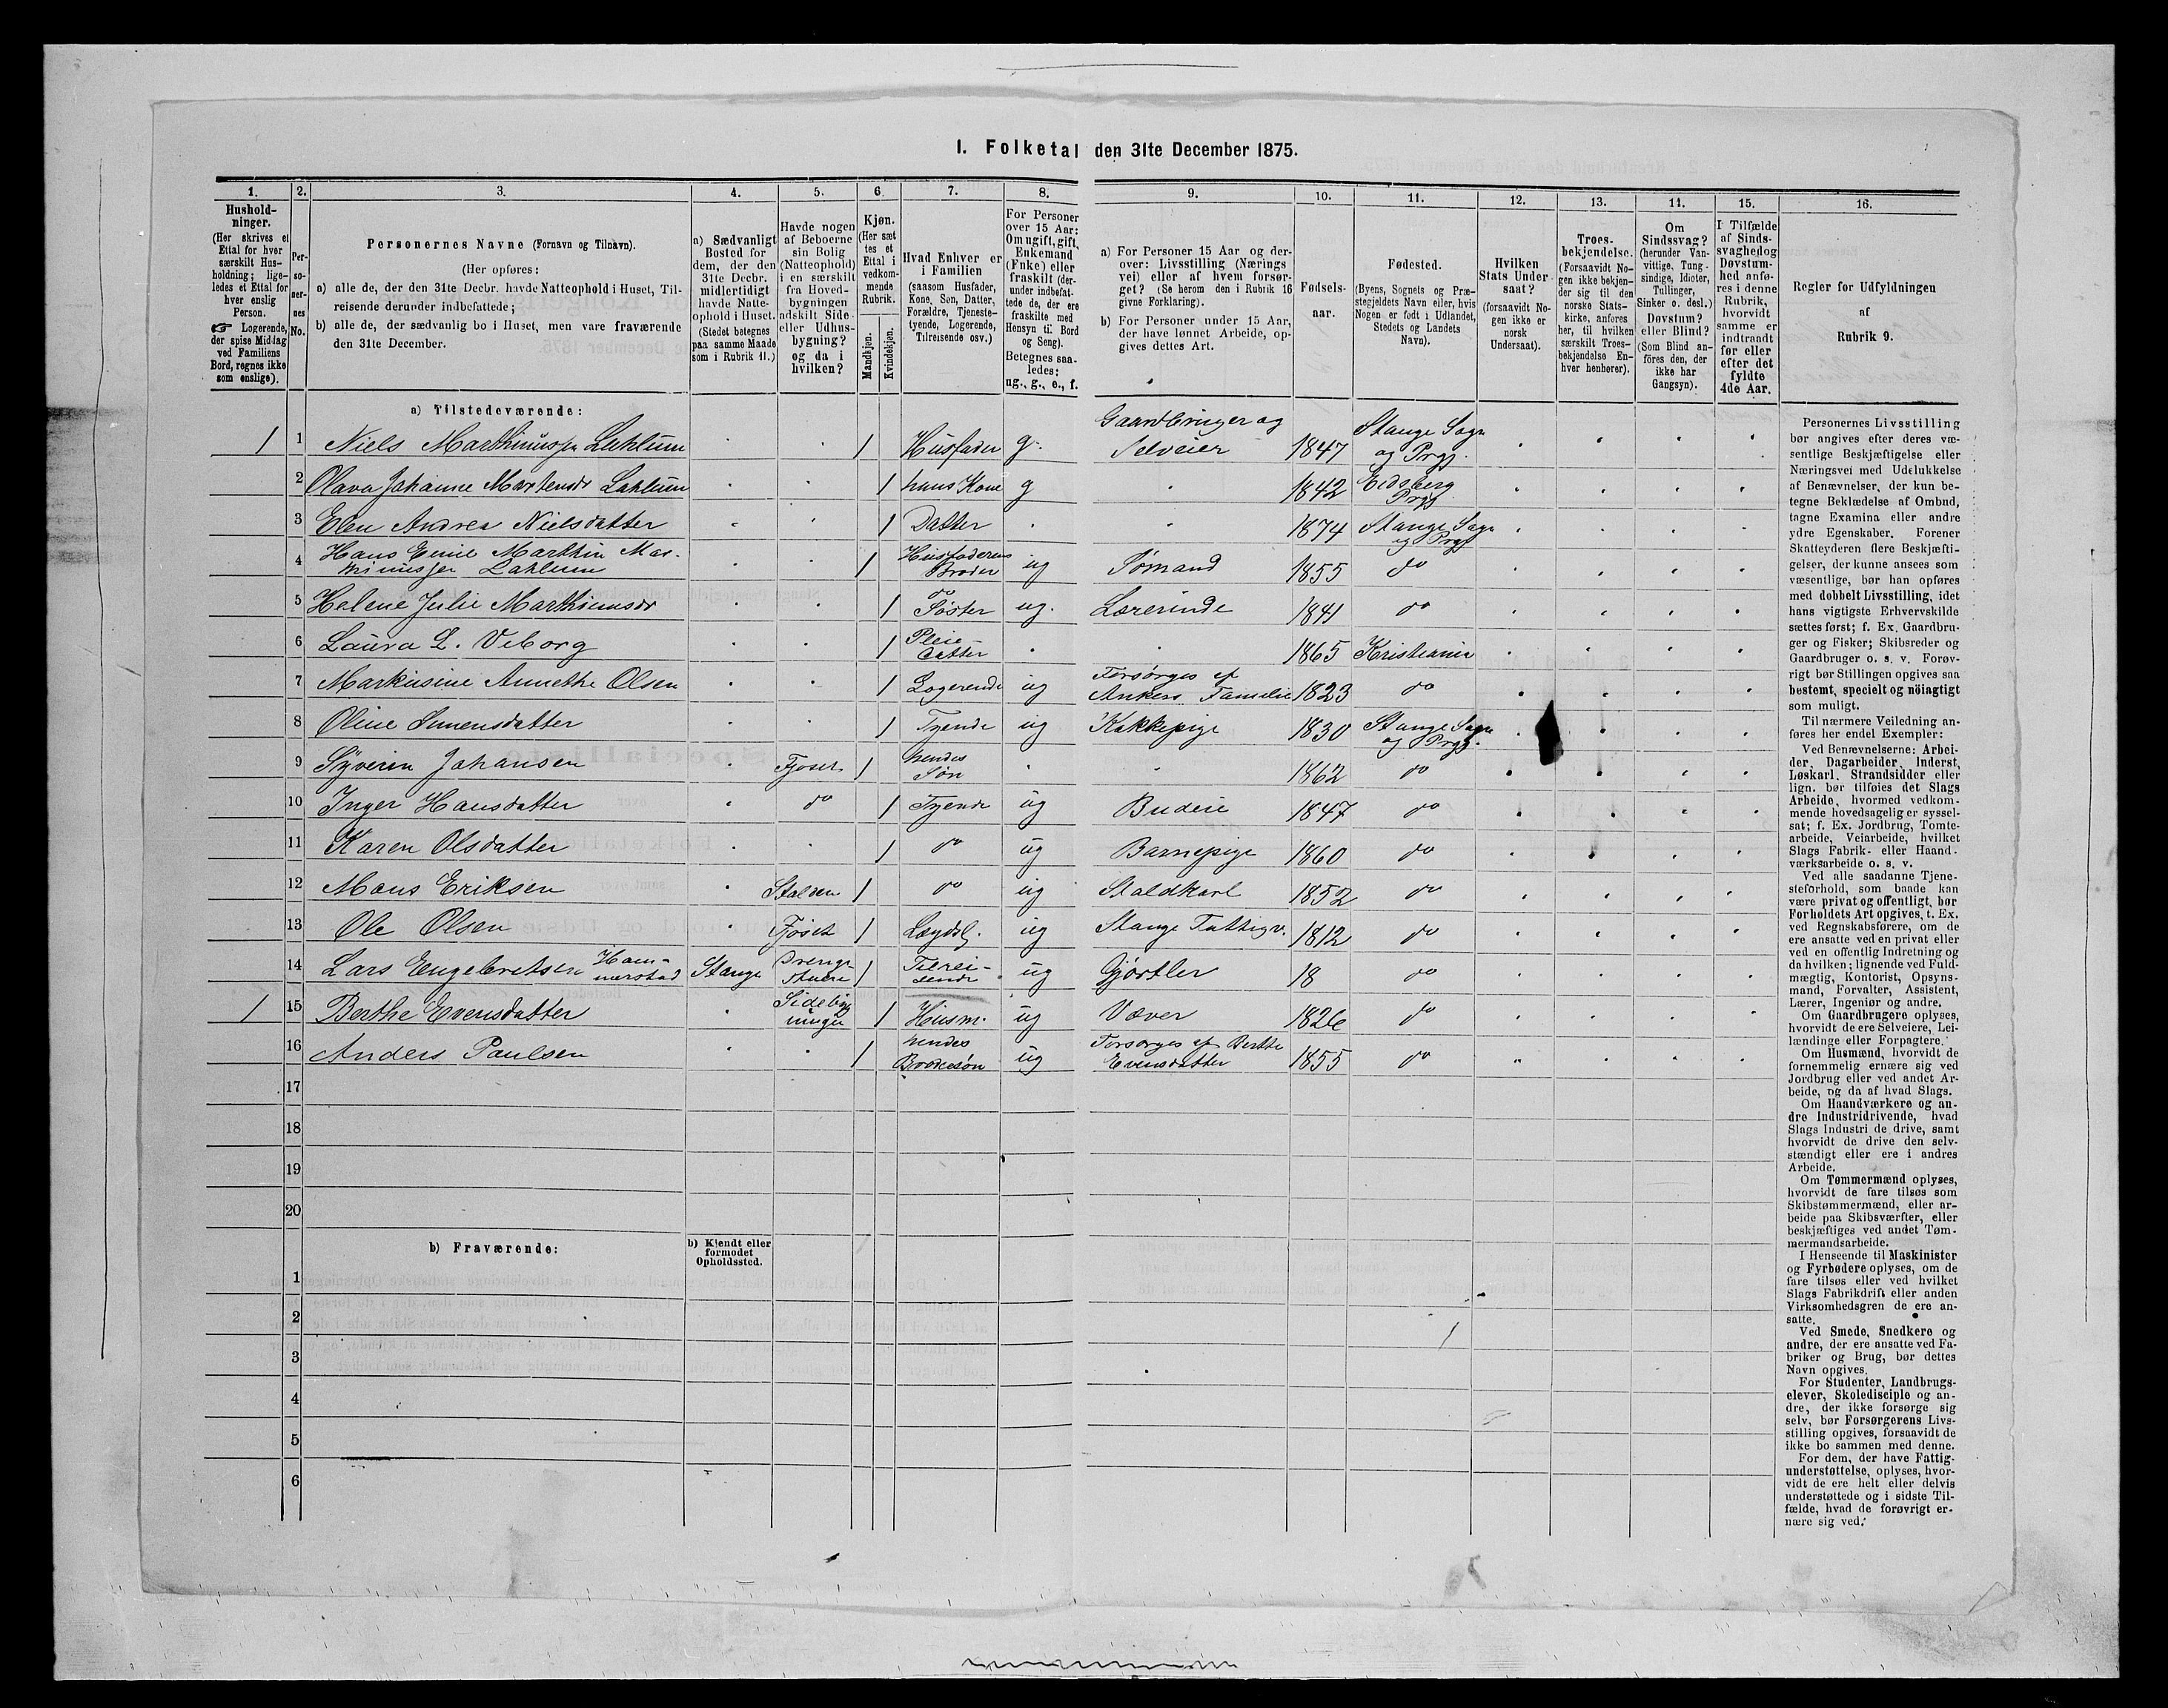 I. Folketal den 31te December 1875.
1. 2. 3. 4. 5. 6. 7. 8. 9. 10. 11. 12. 13. 14. 15. 16.
Hushold-
ninger.
(Her skrives et
Ettal for hver
særskilt Hus-
holdning; lige-
ledes et Ettal for
hver enslig
Person.
☞ Logerende,
der spise Middag
ved Familiens
Bord, regnes ikke
som enslige).
Per-
so-
ner-
nes
No.
Personernes Navne (Fornavn og Tilnavn).
(Her opføres:
a) alle de, der den 31te Decbr. havde Natteophold i Huset, Til-
reisende derunder indbefattede;
b) alle de, der sædvanlig bo i Huset, men vare fraværende
den 31te December.
a) Sædvanligt
Bosted for
dem, der den
31te Decbr.
midlertidigt
havde Natte-
ophold i Huset.
(Stedet betegnes
paa samme Maade
som i Rubrik 11.)
Havde nogen
af Beboerne
sin Bolig
(Natteophold)
i en særskilt
fra Hoved-
bygningen
adskilt Side-
eller Udhus-
bygning?
og da i
hvilken?
Kjøn.
(Her sæt-
tes et
Ettal i
vedkom-
mende
Rubrik.
Mandkjøn.
Kvindekjøn.
Hvad Enhver er
i Familien
(saasom Husfader,
Kone, Søn, Datter,
Forældre, Tjeneste-
tyende, Logerende,
Tilreisende osv.)
For Personer
over 15 Aar:
Om ugift, gift,
Enkemand
(Enke) eller
fraskilt (der-
under indbefat-
tede de, der ere
fraskilte med
Hensyn til Bord
og Seng).
Betegnes saa-
ledes:
ug., g., e., f.
a) For Personer 15 Aar og der-
over: Livsstilling (Nærings
vei) eller af hvem forsør-
get? (Se herom den i Rubrik 16
givne Forklaring).
b) For Personer under 15 Aar,
der have lønnet Arbeide, op-
gives dettes Art.
Fødsels-
aar.
Fødested.
(Byens, Sognets og Præ-
stegjeldets Navn eller, hvis
Nogen er født i Udlandet,
Stedets og Landets
Navn).
Hvilken
Stats Under-
saat?
(forsaavidt No-
gen ikke er
norsk
Undersaat).
Troes-
bekjendelse.
(Forsaavidt No-
gen ikke bekjen-
der sig til den
norske Stats-
kirke, anføres
her, til hvilken
særskilt Troes-
bekjendelse En-
hver henhører).
Om
Sindssvag?
(herunder Van-
vittige, Tung-
sindige, Idioter,
Tullinger,
Sinker o. desl.)
Døvstum?
eller Blind?
(Som Blind an-
føres den, der
ikke har
Gangsyn).
I Tilfælde
af Sinds-
svaghed og
Døvstum-
hed anfø-
res i denne
Rubrik,
hvorvidt
samme er
indtraadt
før eller
efter det
fyldte
4de Aar.
Regler for Udfyldningen
af
Rubrik 9.
a) Tilstedeværende:
1 1 Niels Marthinussen Lahlum 1 Husfader g. Gaardbruger og Selveier 1847 Stange Sogn og Prgj.
2 Olava Johanne Martensdr Lahlum 1 hans Kone g 1842 Eidsberg Prgj
3 Elen Andrea Nielsdatter 1 Datter 1874 Stange Sogn og Prgj
4 Hans Emil Marthin Martinussen Lahlum 1 Husfaderens Broder ug Sømand 1855 do
5 Helene Julie Marthinusdr 1 do Søster ug. Lærerinde 1841 do
6 Laura L. Viborg 1 Pleiedatter 1865 Kristiania
7 Markusine Annethe Olsen 1 Logerende ug Forsørges af Ankers Familie 1823 do
8 Oline Simensdatter 1 Tyende ug Kokkepige 1830 Stange Sogn og Prgj.
9 Syverin Johansen Fjøset 1 hendes Søn 1862 do
10 Inger Hansdatter do 1 Tyende ug Budeie 1847 do
11 Karen Olsdatter 1 do ug Barnepige 1860 do
12 Mons Eriksen Stalden 1 do ug Staldkarl 1852 do
13 Ole Olsen Fjøset 1 Lægdsl. ug Stange Fattigv. 1812 do
14 Lars Engebretsen Hammerstad Stange Drengestuen 1 Tilreisende ug Gjørtler 18 do
1 15 Berthe Evensdatter Sidebygningen 1 Husm. ug Væver 1826 do
16 Anders Paulsen 1 hendes Brodersøn ug Forsørges af Berthe Evensdatter 1855 do
17
18
19
20
b) Fraværende:
b) Kjendt eller
formodet
Opholdssted.
1
2
3
4
5
6
Personernes Livsstilling
bør angives efter deres væ-
sentlige Beskjæftigelse eller
Næringsvei med Udelukkelse
af Benævnelser, der kun be-
tegne Beklædelse af Ombud,
tagne Examina eller andre
ydre Egenskaber. Forener
Skatteyderen flere Beskjæfti-
gelser, der kunne ansees som
væsentlige, bør han opføres
med dobbelt Livsstilling, idet
hans vigtigste Erhvervskilde
sættes først; f. Ex. Gaardbru-
ger og Fisker; Skibsreder og
Gaardbruger o. s. v. Forøv-
rigt bør Stillingen opgives saa
bestemt, specielt og nöiagtigt
som muligt.
Til nærmere Veiledning an-
føres her endel Exempler:
Ved Benævnelserne: Arbei-
der, Dagarbeider, Inderst,
Løskarl, Strandsidder eller
lign. bør tilføies det Slags
Arbeide, hvormed vedkom-
mende hovedsagelig er syssel-
sat; f. Ex. Jordbrug, Tomte-
arbeide, Veiarbeide, hvilket
Slags Fabrik- eller Haand-
værksarbeide o. s. v.
Ved alle saadanne Tjene-
steforhold, som baade kan
være privat og offentligt, bør
Forholdets Art opgives, t. Ex.
ved Regnskabsførere, om de
ere ansatte ved en privat eller
ved en offentlig Indretning og
da hvilken; lignende ved Fuld-
mægtig, Kontorist, Opsyns-
mand, Forvalter, Assistent,
Lærer, Ingeniør og andre.
Om Gaardbrugere oplyses,
hvorvidt de ere Selveiere, Lei-
lændinge eller Forpagtere.
Om Husmænd, hvorvidt de
fornemmelig ernære sig ved
Jordbrug eller ved andet Ar-
beide, og da af hvad Slags.
Om Haandværkere og an-
dre Industridrivende, hvad
Slags Industri de drive, samt
hvorvidt de drive den selv-
stændigt eller ere i andres
Arbeide.
Om Tømmermænd oplyses,
hvorvidt de fare tilsøs som
Skibstømmermænd, eller ar-
beide paa Skibsværfter, eller
beskjæftiges ved andet Tøm-
mermandsarbeide.
I Henseende til Maskinister
og Fyrbødere oplyses, om de
fare tilsøs eller ved hvilket
Slags Fabrikdrift eller anden
Virksomhedsgren de ere an-
satte.
Ved Smede, Snedkere og
andre, der ere ansatte ved Fa-
briker og Brug, bør dettes
Navn opgives.
For Studenter, Landbrugs-
elever, Skoledisciple og an-
dre, der ikke forsørge sig
selv, bør Forsørgerens Livs-
stilling opgives, forsaavidt de
ikke bo sammen med denne.
For dem, der have Fattig-
understøttelse, oplyses, hvor-
vidt de ere helt eller delvis
understøttede og i sidste Til-
fælde, hvad de forøvrigt er-
nære sig ved.